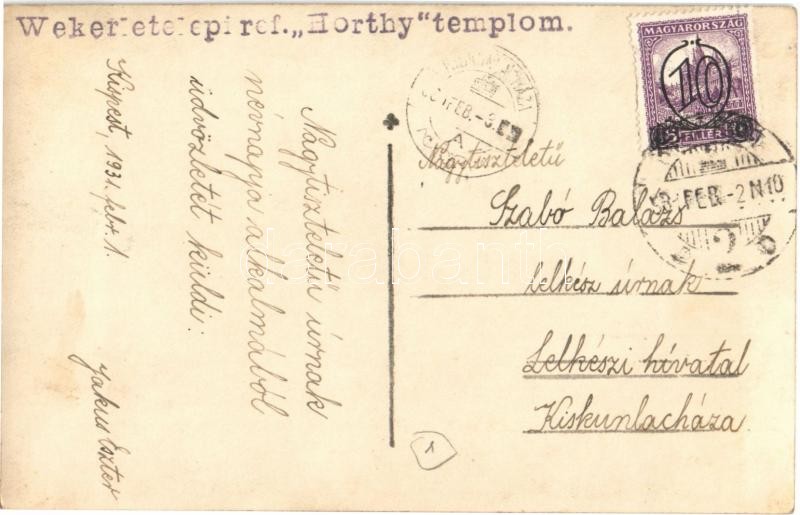 Wekerletelepi ref. „Horthy" templom.
Kispest, 1931. febr. 1.
Nagytiszteletű úrnak
névnapja alkalmából
üdvözletet küldi:
Jakus Eszter
Nagytiszteletű
Szabó Balázs
lelkész úrnak
Lelkészi hivatal
Kiskunlacháza
1
MAGYARORSZÁG
10
FILLÉR
FEB.-3.
A
FEB.-2 N10
2
darabanth